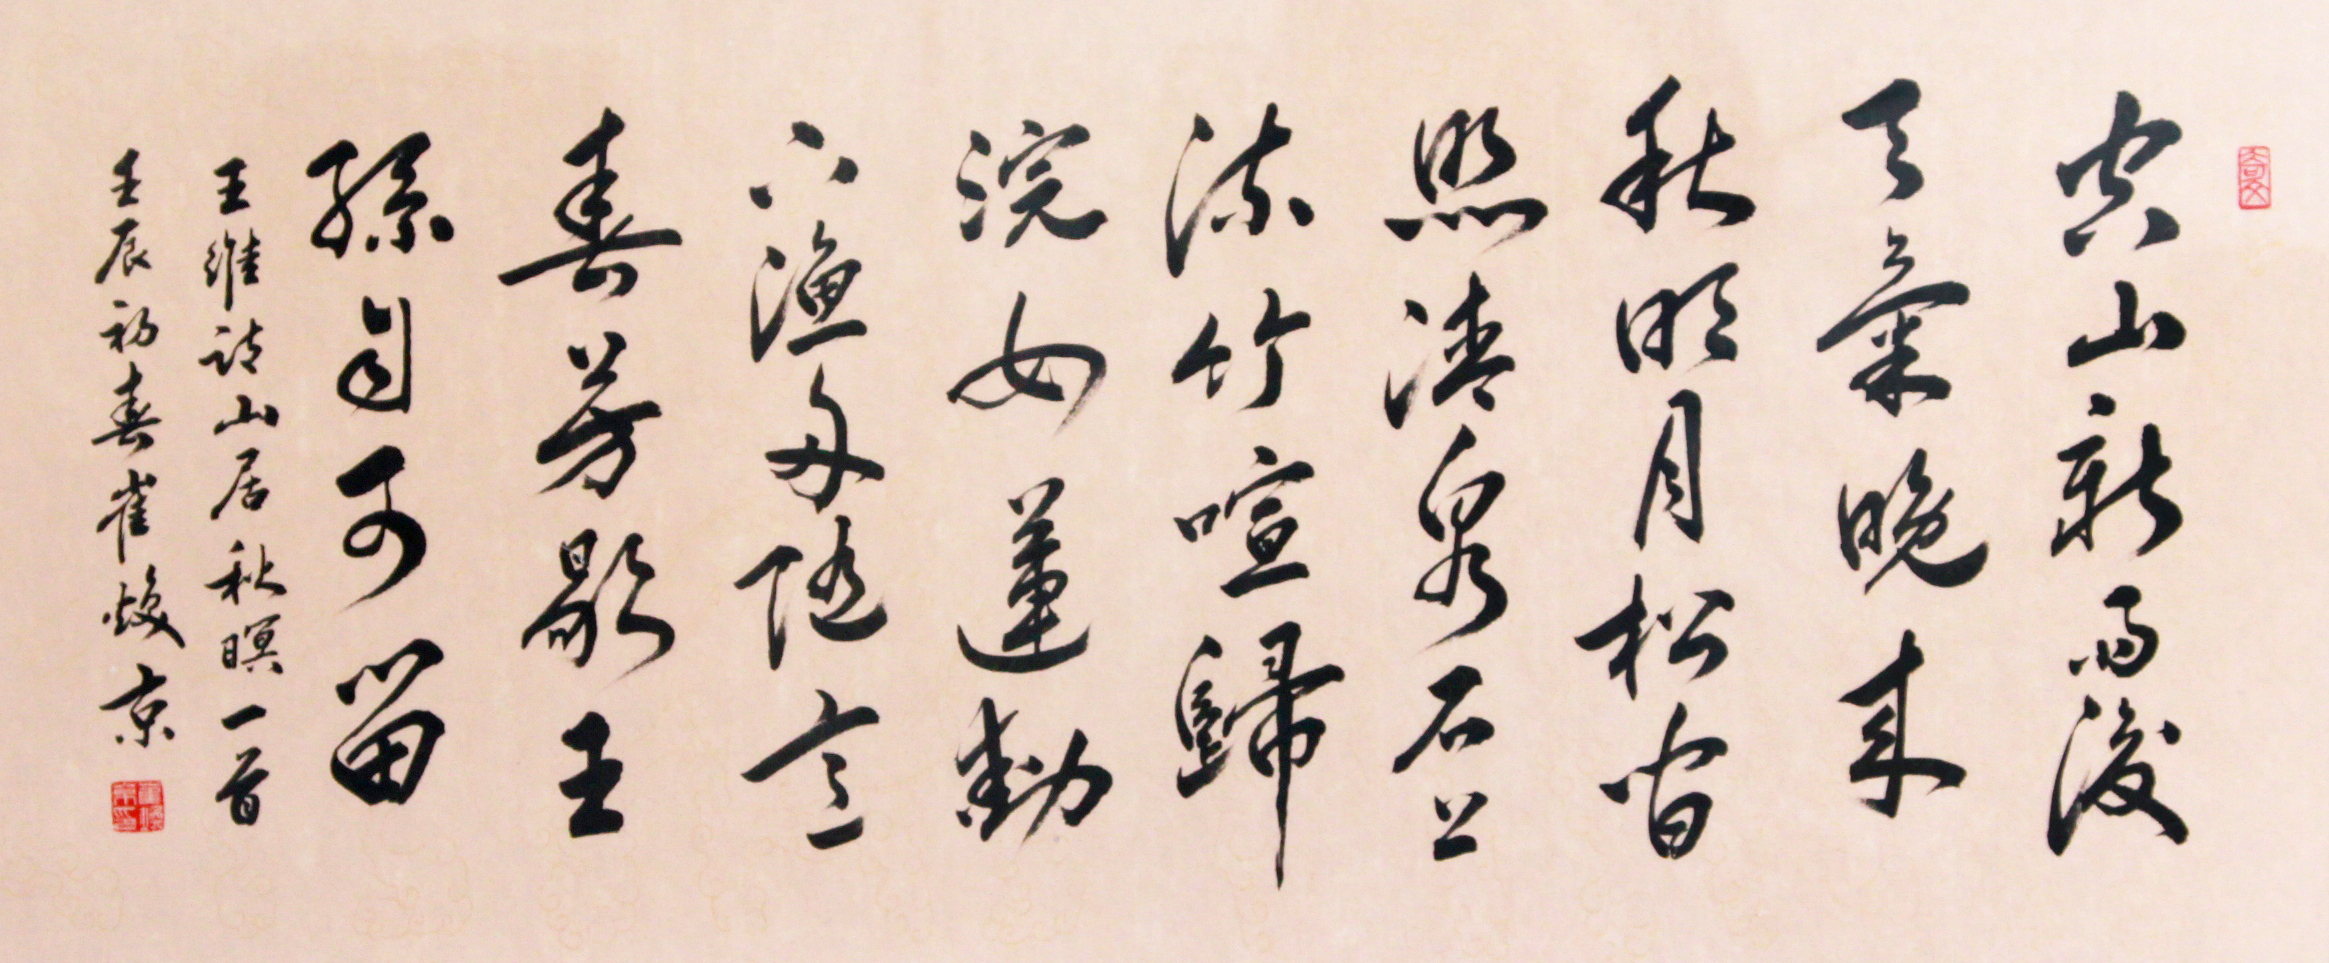 空山新雨後
天氣晚来
秋明月松间
照清泉石上
流竹喧歸
浣女蓮動
下漁舟随意
春芳歇王
孫自可留
王维诗山居秋暝一首
壬辰初春崔焕京